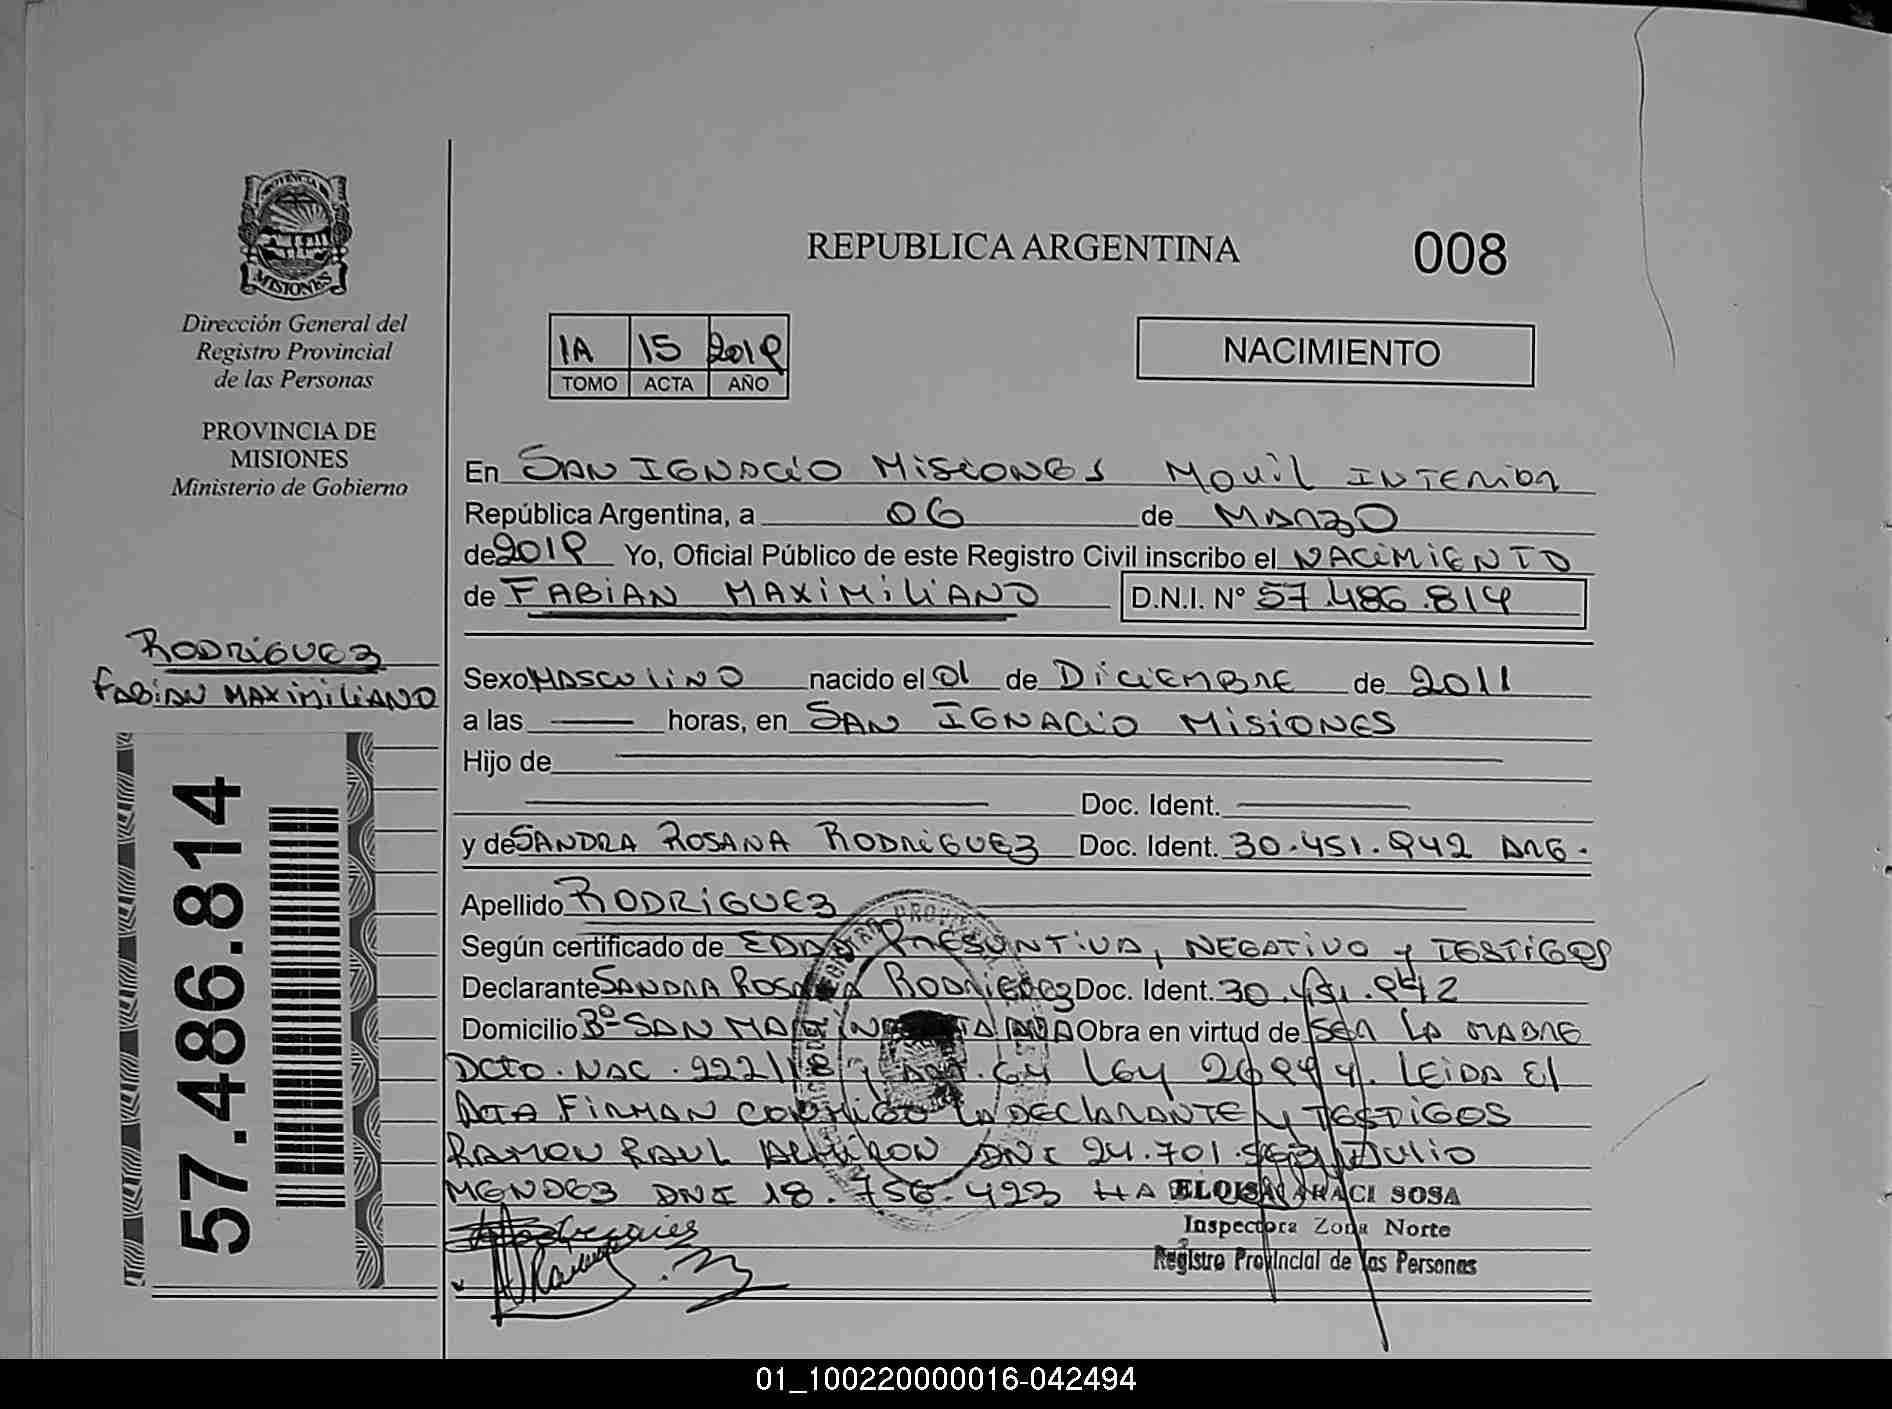 PROVINCIA
MISIONES
Dirección General del
Registro Provincial
de las Personas
PROVINCIA DE
MISIONES
Ministerio de Gobierno
RODRIGUEZ
FABIAN MAXIMILIANO
57.486.814
REPUBLICA ARGENTINA 008
1A 15 2019
TOMO ACTA AÑO
NACIMIENTO
En SAN IGNACIO MISIONES MOVIL INTERIOR
República Argentina, a 06 de MARZO
de 2019 Yo, Oficial Público de este Registro Civil inscribo el NACIMIENTO
de FABIAN MAXIMILIANO D.N.I. N° 57.486.814
Sexo MASCULINO nacido el 01 de DICIEMBRE de 2011
a las horas, en SAN IGNACIO MISIONES
Hijo de
Doc. Ident.
y de SANDRA ROSANA RODRIGUEZ Doc. Ident. 30.451.942 ARG.
Apellido RODRIGUEZ
Según certificado de EDAD PRESUNTIVA, NEGATIVO y TESTIGOS
Declarante SANDRA ROSANA RODRIGUEZ Doc. Ident. 30.451.942
Domicilio Bº SAN Obra en virtud de SER LA MADRE
DCTO. NAC. 222/18 y ART. 64 LEY 26994. LEIDA El
ACTA FIRMAN CONMIGO LA DECLARANTE y TESTIGOS
RAMON RAUL ALMIRON DNI 24.701. JULIO
MENDEZ DNI 18.756.423
ELOISA ARACI SOSA
Inspectora Zona Norte
Registro Provincial de las Personas
01_100220000016-042494